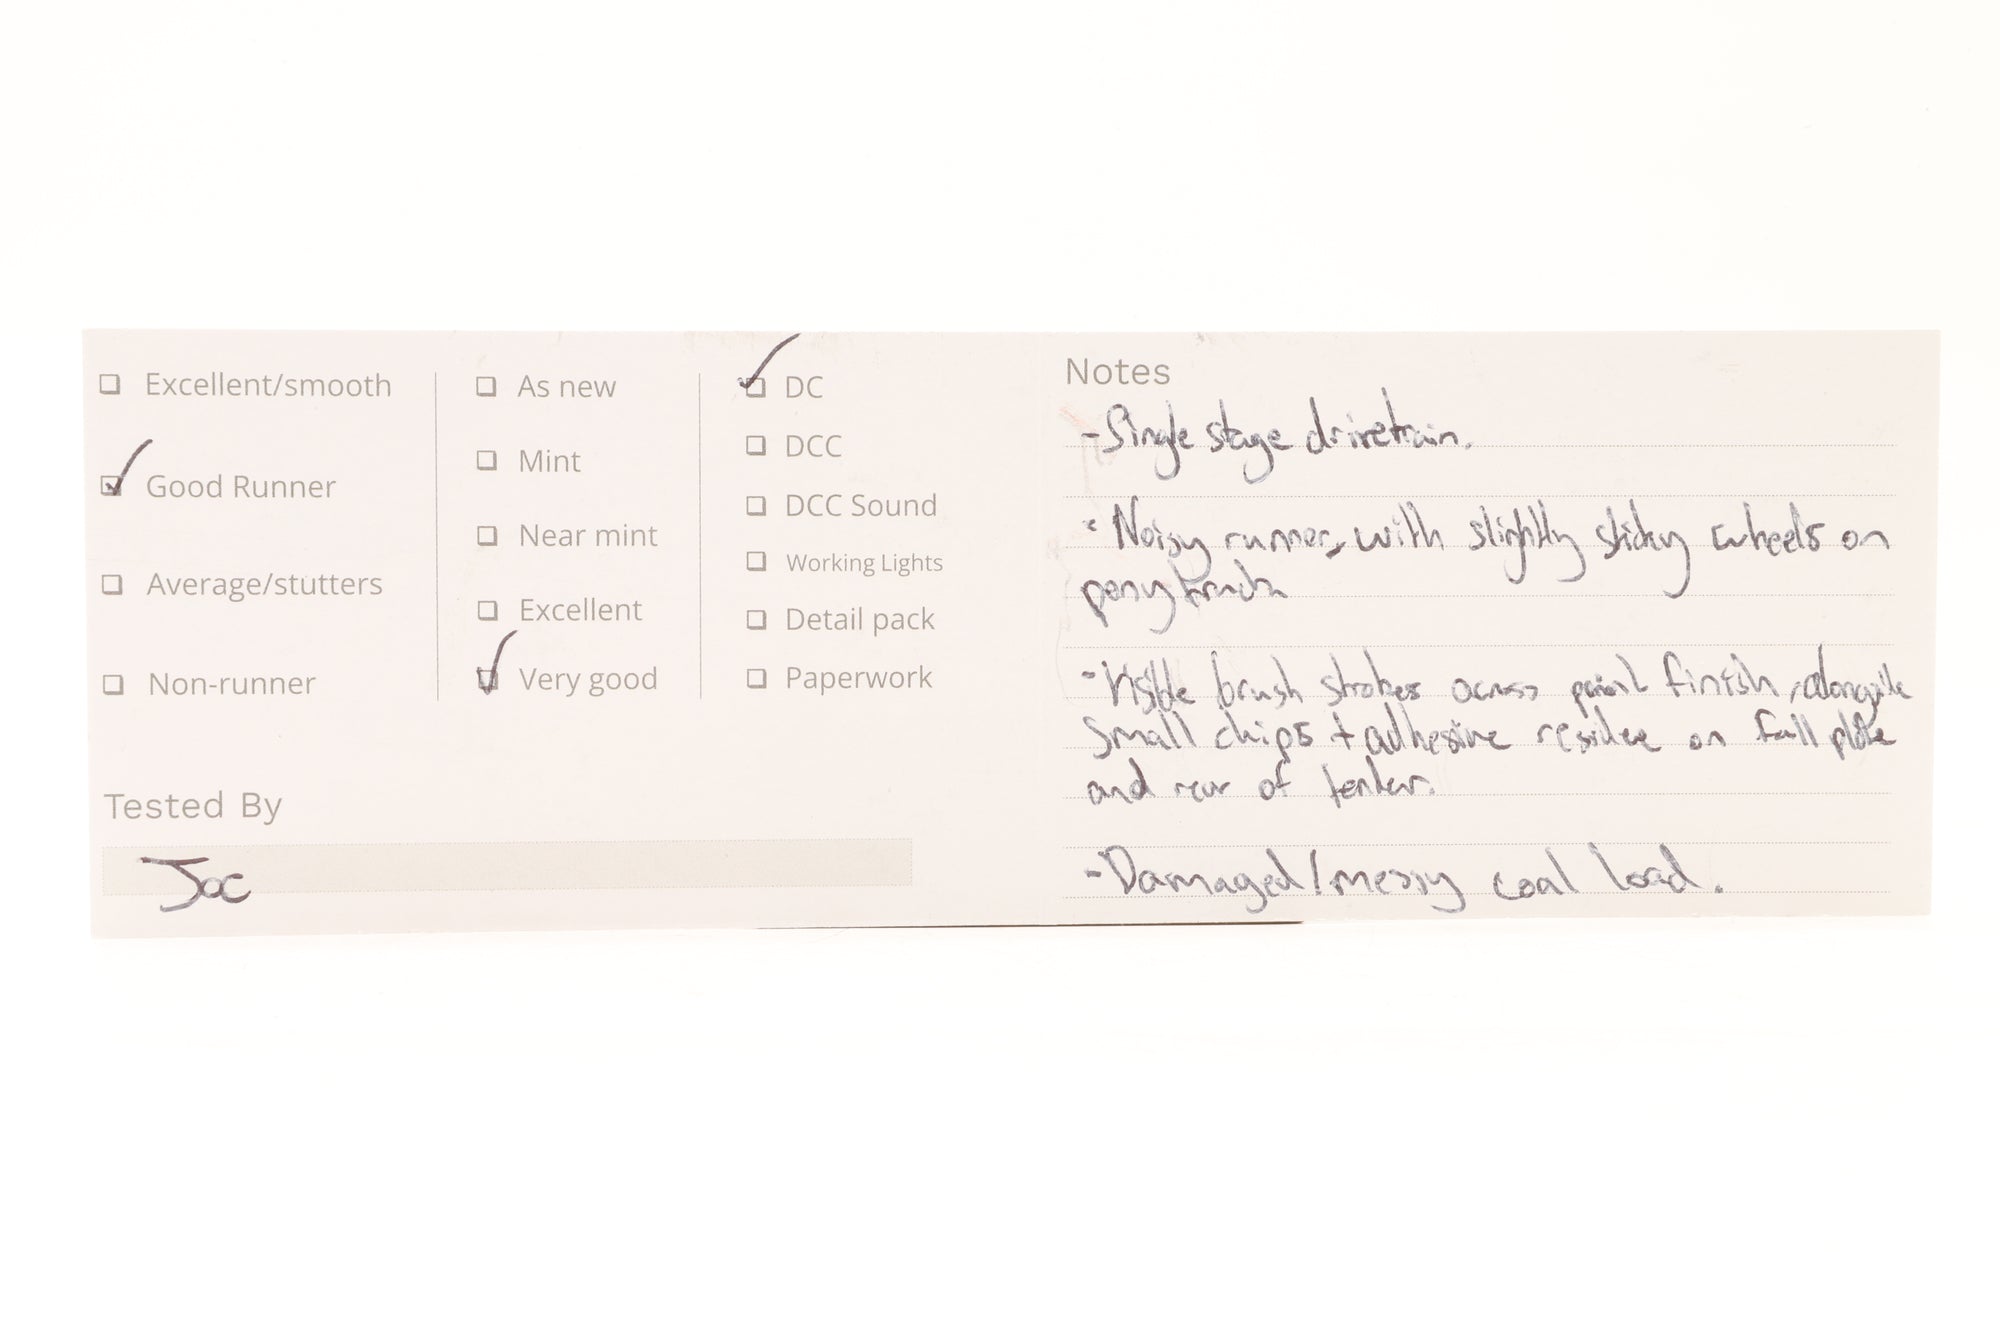 Excellent/smooth
Good Runner
Average/stutters
Non-runner
As new
Mint
Near mint
Excellent
Very good
DC
DCC
DCC Sound
Working Lights
Detail pack
Paperwork
Tested By
Joe
Notes
- Single stage drivetrain.
- Noisy runner, with slightly sticky wheels on
pony truck
- Visible brush strokes across paint finish, alongside
small chips + adhesive residue on fall plate
and rear of tender.
- Damaged/messy coal load.